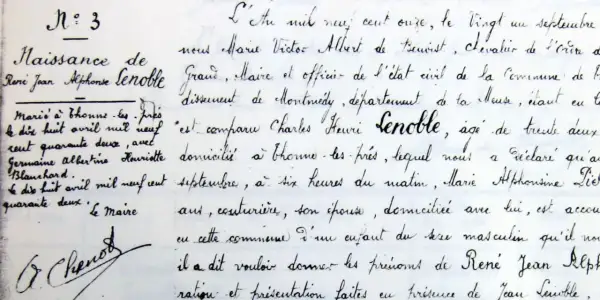 N° 3
Naissance de
René Jean Alphonse Lenoble
Marié à Thonne-les-Prés
le dix huit avril mil neuf
cent quarante deux, avec
Germaine Albertine Henriette
Blanchard.
le dix huit avril mil neuf cent
quarante deux.
Le Maire
L'An mil neuf cent onze, le Vingt un septembre
nous Marie Victor Albert de Benoist, Chevalier de l'Ordre d
Grand, Maire et officier de l'état civil de la Commune de
dissement de Montmédy, département de la Meuse, étant en l
est comparu Charles Henri Lenoble, âgé de trente deux
domicilié à Thonne-les-prés, lequel nous a déclaré qu'au
septembre, à six heures du matin, Marie Alphonsine
ans, couturière, son épouse, domiciliée avec lui, est accou
en cette commune d'un enfant du sexe masculin qu'il no
il a dit vouloir donner les prénoms de René Jean Alph
ration et présentation faites en présence de Jean Lenoble,